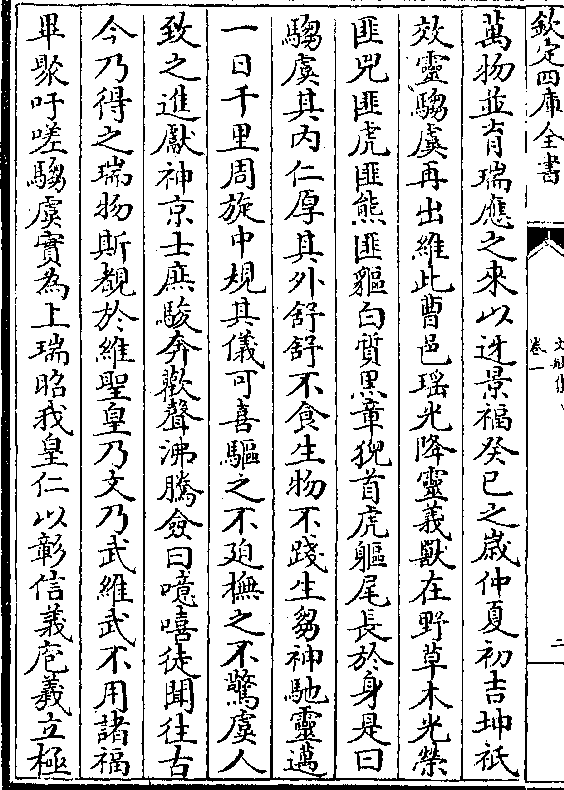 欽定四庫全書
卷一
二
萬物並育瑞應之來以迓景福癸巳之嵗仲夏初吉坤祇
效靈騶虞再出維此曹邑瑶光降靈義獸在野草木光榮
匪兕匪虎匪熊匪貙白質黒章猊首虎軀尾長於身是曰
騶虞其内仁厚其外舒舒不食生物不踐生芻神馳靈邁
一日千里周旋中規其儀可喜驅之不廹撫之不驚虞人
致之進獻神京士庶駿奔歡聲沸騰僉曰噫嘻徒聞徃古
今乃得之瑞物斯覩於維聖皇乃文乃武維武不用諸福
畢聚吁嗟騶虞實為上瑞昭我皇仁以彰信義庖羲立極